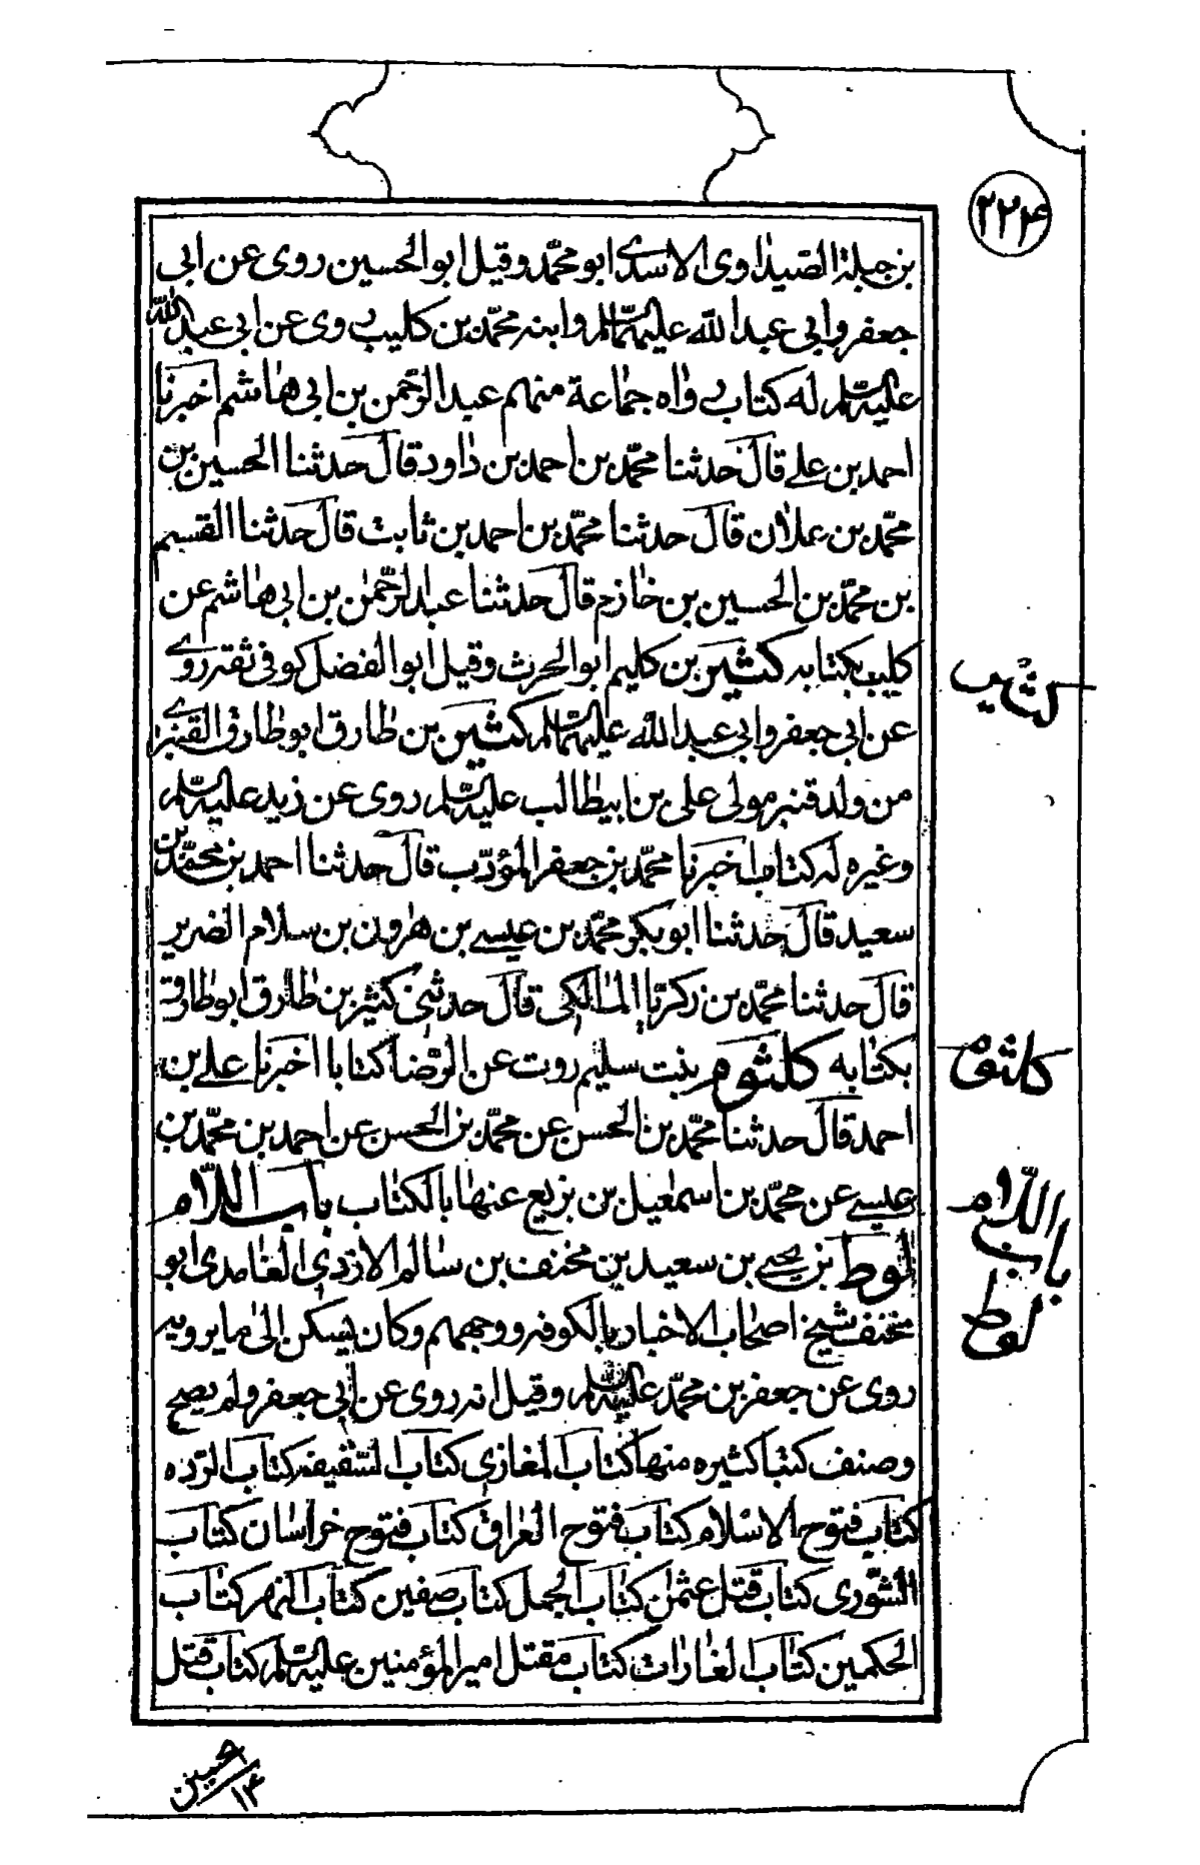 ۲۲۴
بن جبلة الصيداوى الاسدى ابو محمّد وقيل ابو الحسين روى عن ابى
جعفر وابى عبد الله عليهما السّلم وابنه محمّد بن كليب روى عن ابى عبد الله
عليه السّلم له كتاب رواه جماعة منهم عبد الرّحمن بن ابى هاشم اخبرنا
احمد بن على قال حدثنا محمّد بن احمد بن داود قال حدثنا الحسين بن
محمّد بن علان قال حدثنا محمّد بن احمد بن ثابت قال حدثنا القسيم
بن محمّد بن الحسين بن خازم قال حدثنا عبد الرّحمن بن ابى هاشم عن
كليب بكتابه كثير بن كليم ابو الحرث وقيل ابو الفضل كوفى ثقه روى
عن ابى جعفر وابى عبد الله عليهما السّلم كثير بن طارق ابو طارق القنبرى
من ولد قنبر مولى على بن ابيطالب عليه السّلم روى عن زيد عليه السّلم
وغيره له كتاب اخبرنا محمّد بن جعفر المؤدّب قال حدثنا احمد بن محمّد بن
سعيد قال حدثنا ابو بكر محمّد بن عيسى بن هرون بن سلام الضرير
قال حدثنا محمّد بن زكريّا المالكى قال حدثنى كثير بن طارق ابو طارق
بكتابه كلثوم بنت سليم روت عن الرّضا كتابا اخبرنا على بن
احمد قال حدثنا محمّد بن الحسن عن محمّد بن الحسن عن احمد بن محمّد بن
عيسى عن محمّد بن اسمعيل بن بزيع عنها بالكتاب باب اللّام
لوط بن يحيى بن سعيد بن مخنف بن سالم الازدى الغامدى ابو
مخنف شيخ اصحاب الاخبار بالكوفه ووجههم وكان يسكن الى ما يرويه
روى عن جعفر بن محمّد عليه السّلم وقيل انه روى عن ابى جعفر ولم يصح
وصنف كتبا كثيره منها كتاب المغازى كتاب السّقيفه كتاب الرّده
كتاب فتوح الاسلام كتاب فتوح العراق كتاب فتوح خراسان كتاب
الشّورى كتاب قتل عثمن كتاب الجمل كتاب صفين كتاب النهر كتاب
الحكمين كتاب الغارات كتاب مقتل امير المؤمنين عليه السّلم كتاب قتل
كثير
كلثوم
باب اللّام
لوط
حسين
۱۴